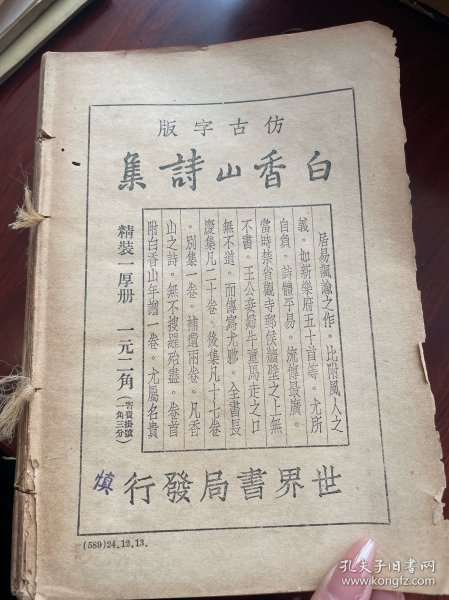 仿古字版
白香山詩集
居易諷諭之作。比附風人之
義。如新樂府五十首等。尤所
自負。詩體平易。流傳最廣。
當時禁省觀寺郵候牆壁之上無
不書。王公妾婦牛童馬走之口
無不道。而傳寫尤夥。全書長
慶集凡二十卷。後集凡十七卷
。別集一卷。補遺兩卷。凡香
山之詩。無不搜羅殆盡。卷首
附白香山年譜一卷。尤屬名貴
精裝一厚册 一元二角(寄費掛號一角三分)
世界書局發行
慎
(589)24.12.13.
孔夫子旧书网
kongfz.com